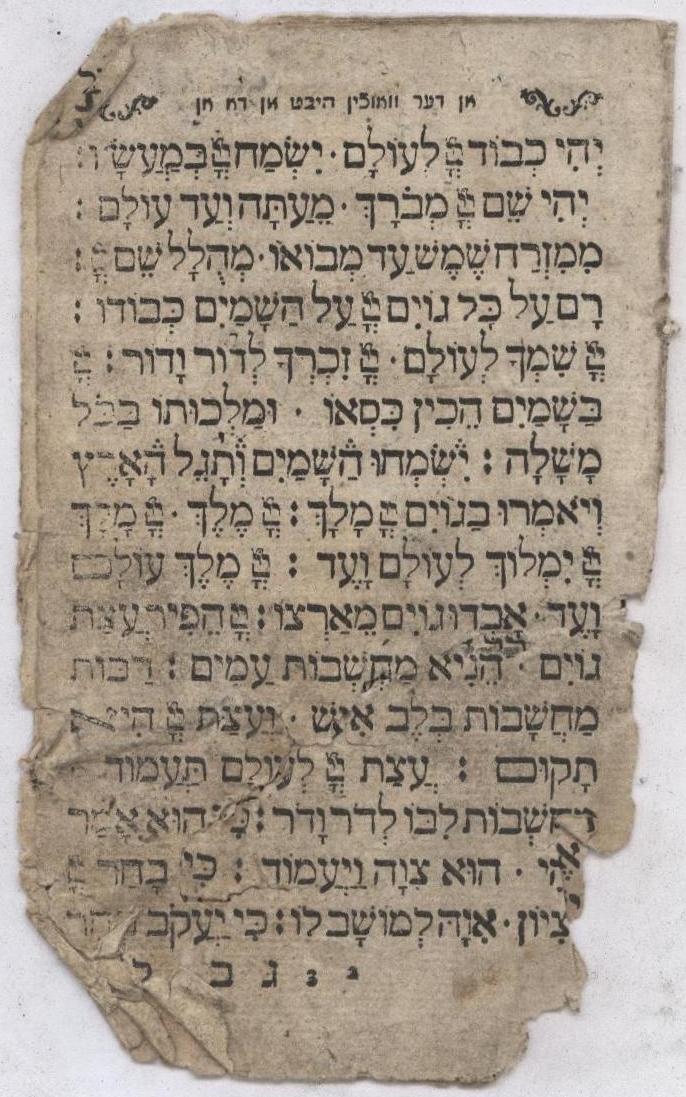 אן דער וואוכין היבט מן דא אן
יְהִי כְבוֹד יְיָ לְעוֹלָם · יִשְׂמַח יְיָ בְּמַעֲשָׂיו :
יְהִי שֵׁם יְיָ מְבֹרָךְ · מֵעַתָּה וְעַד עוֹלָם :
מִמִּזְרַח שֶׁמֶשׁ עַד מְבוֹאוֹ · מְהֻלָּל שֵׁם יְיָ :
רָם עַל כָּל גּוֹיִם יְיָ עַל הַשָּׁמַיִם כְּבוֹדוֹ :
יְיָ שִׁמְךָ לְעוֹלָם · יְיָ זִכְרְךָ לְדוֹר וָדוֹר : יְיָ
בַּשָּׁמַיִם הֵכִין כִּסְאוֹ · וּמַלְכוּתוֹ בַּכֹּל
מָשָׁלָה : יִשְׂמְחוּ הַשָּׁמַיִם וְתָגֵל הָאָרֶץ
וְיֹאמְרוּ בַגּוֹיִם יְיָ מָלָךְ : יְיָ מֶלֶךְ · יְיָ מָלָךְ
יְיָ יִמְלוֹךְ לְעוֹלָם וָעֶד : יְיָ מֶלֶךְ עוֹלָם
וָעֶד · אָבְדוּ גוֹיִם מֵאַרְצוֹ : יְיָ הֵפִיר עֲצַת
גּוֹיִם · הֵנִיא מַחְשְׁבוֹת עַמִּים : רַבּוֹת
מַחֲשָׁבוֹת בְּלֶב אִישׁ · וַעֲצַת יְיָ הִיא
תָקוּם : עֲצַת יְיָ לְעוֹלָם תַּעֲמוֹד
מַחְשְׁבוֹת לִבּוֹ לְדֹר וָדֹר : כִּי הוּא אָמַר
וַיְהִי · הוּא צִוָּה וַיַּעֲמוֹד : כִּי בָחַר יְיָ
בְּצִיּוֹן · אִוָּהּ לְמוֹשָׁב לוֹ : כִּי יַעֲקֹב בָּחַר
ב 3 ג ב ל